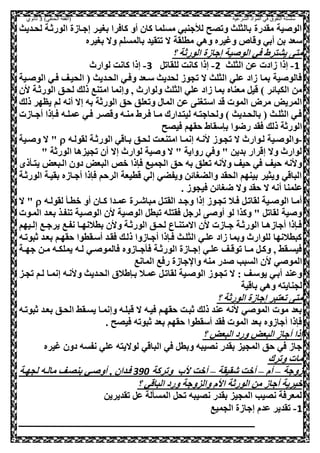 سلسلة التفوق في المواد الشرعية
الوصية مقدرة بالثلث وتصح للأجنبي مسلما كان أو كافرا بغير إجازة الورثة لحديث
سعد بن أبي وقاص وغيره وهي مطلقة لا تتقيد بالمسلم ولا بغيره
متى يشترط في الوصية إجازة الورثة ؟
1- إذا زادت عن الثلث 2- إذا كانت للقاتل 3- إذا كانت لوارث
فالوصية بما زاد علي الثلث لا تجوز لحديث سعد وفي الحديث ( الحيف في الوصية
من الكبائر ) قيل معناه بما زاد علي الثلث ولوارث , وإنما امتنع ذلك لحق الورثة لأن
المريض مرض الموت قد استغني عن المال وتعلق حق الورثة به إلا أنه لم يظهر ذلك
في الثلث ( بالحديث ) ولحاجته ليتدارك ما فرط منه وقصر في عمله فإذا أجازت
الورثة ذلك فقد رضوا بإسقاط حقهم فيصح
-والوصية لوارث لا تجوز لأنه إنما امتنعت لحق باقي الورثة لقوله ρ " لا وصية
لوارث ولا إقرار بدين " وفي رواية " لا وصية لوارث إلا أن تجيزها الورثة "
ولأنه حيف في حيف ولأنه تعلق به حق الجميع فإذا خص البعض دون البعض يتأذي
الباقي ويثير بينهم الحقد والضغائن ويفضي إلي قطيعة الرحم فإذا أجازه بقية الورثة
علمنا أنه لا حقد ولا ضغائن فيجوز .
أما الوصية لقاتل فلا تجوز إذا وجد القتل مباشرة عمدا كان أو خطأ لقوله ρ " لا
وصية لقاتل " وكذا لو أوصى لرجل فقتله تبطل الوصية لأن الوصية تنفذ بعد الموت
فإذا أجازها الورثة جازت لأن الامتناع لحق الورثة ولأن بطلانها نفع يرجع إليهم
كبطلانها للوارث وبما زاد علي الثلث فإذا أجازوا ذلك فقد أسقطوا حقهم بعد ثبوته
فيسقط , وكل ما توقف علي إجازة الورثة فأجازوه فالموصي له يملكه من جهة
الموصي لأن السبب صدر منه والإجازة رفع المانع
وعند أبي يوسف : لا تجوز الوصية لقاتل عملا بإطلاق الحديث ولأنه إنما لم تجز
لجنايته وهي باقية
متى تعتبر إجازة الورثة ؟
بعد موت الموصي لأنه عند ذلك ثبت حقهم فيه لا قبله وإنما يسقط الحق بعد ثبوته
فإذا أجازوه بعد الموت فقد أسقطوا حقهم بعد ثبوته فيصح .
إذا أجاز البعض ورد البعض ؟
جاز في حق المجيز بقدر نصيبه وبطل في الباقي لولايته علي نفسه دون غيره
مات وترك
زوجة – أم – أخت شقيقة – أخت لأب وتركة 390 فدان , أوصى بنصف ماله لجهة
خيرية أجاز من الورثة الأم والزوجة ورد الباقي ؟
لمعرفة نصيب المجيز بقدر نصيبه تحل المسألة على تقديرين
1- تقدير عدم إجازة الجميع